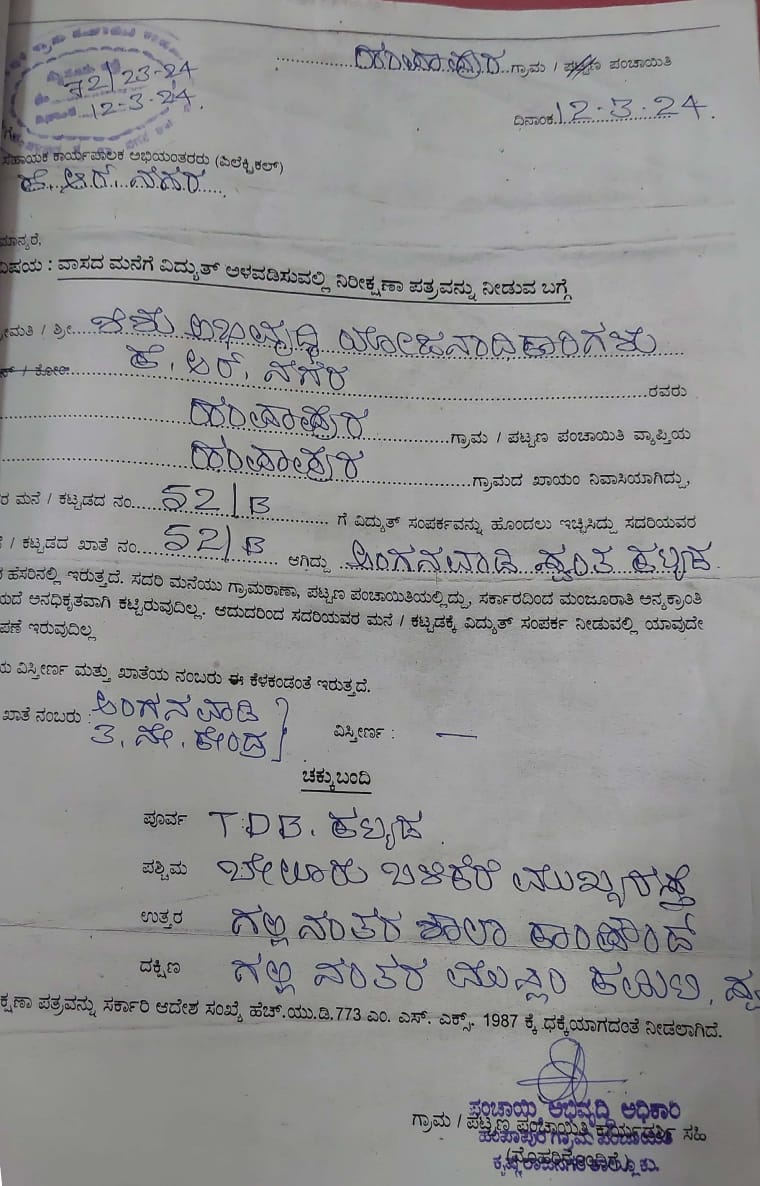 ಹಂಪಾಪುರ ಗ್ರಾಮ / ಪಟ್ಟಣ ಪಂಚಾಯಿತಿ
72/23-24
12-3-24.
ದಿನಾಂಕ 12-3-24.
ಸಹಾಯಕ ಕಾರ್ಯಪಾಲಕ ಅಭಿಯಂತರರು (ಎಲೆಕ್ಟ್ರಿಕಲ್)
ಕೆ. ಆರ್. ನಗರ
ಮಾನ್ಯರೆ,
ವಿಷಯ : ವಾಸದ ಮನೆಗೆ ವಿದ್ಯುತ್ ಅಳವಡಿಸುವಲ್ಲಿ ನಿರೀಕ್ಷಣಾ ಪತ್ರವನ್ನು ನೀಡುವ ಬಗ್ಗೆ
ಶ್ರೀಮತಿ / ಶ್ರೀ ಶಿಶು ಅಭಿವೃದ್ಧಿ ಯೋಜನಾಧಿಕಾರಿಗಳು
ಕೆ. ಆರ್. ನಗರ ರವರು
ಹಂಪಾಪುರ ಗ್ರಾಮ / ಪಟ್ಟಣ ಪಂಚಾಯಿತಿ ವ್ಯಾಪ್ತಿಯ
ಹಂಪಾಪುರ ಗ್ರಾಮದ ಖಾಯಂ ನಿವಾಸಿಯಾಗಿದ್ದು,
ರ ಮನೆ / ಕಟ್ಟಡದ ನಂ. 52/B ಗೆ ವಿದ್ಯುತ್ ಸಂಪರ್ಕವನ್ನು ಹೊಂದಲು ಇಚ್ಛಿಸಿದ್ದು ಸದರಿಯವರ
/ ಕಟ್ಟಡದ ಖಾತೆ ನಂ. 52/B ಆಗಿದ್ದು ಅಂಗನವಾಡಿ ಸ್ವಂತ ಕಟ್ಟಡ
ರ ಹೆಸರಿನಲ್ಲಿ ಇರುತ್ತದೆ. ಸದರಿ ಮನೆಯು ಗ್ರಾಮಠಾಣಾ, ಪಟ್ಟಣ ಪಂಚಾಯಿತಿಯಲ್ಲಿದ್ದು, ಸರ್ಕಾರದಿಂದ ಮಂಜೂರಾತಿ ಅನ್ಯಕ್ರಾಂತಿ
ಯದೆ ಅನಧಿಕೃತವಾಗಿ ಕಟ್ಟಿರುವುದಿಲ್ಲ. ಆದುದರಿಂದ ಸದರಿಯವರ ಮನೆ / ಕಟ್ಟಡಕ್ಕೆ ವಿದ್ಯುತ್ ಸಂಪರ್ಕ ನೀಡುವಲ್ಲಿ ಯಾವುದೇ
ಪಣೆ ಇರುವುದಿಲ್ಲ
ಯ ವಿಸ್ತೀರ್ಣ ಮತ್ತು ಖಾತೆಯ ನಂಬರು ಈ ಕೆಳಕಂಡಂತೆ ಇರುತ್ತದೆ.
ಖಾತೆ ನಂಬರು : ಅಂಗನವಾಡಿ
3. ನೇ. ಕೇಂದ್ರ ವಿಸ್ತೀರ್ಣ : —
ಚಕ್ಕುಬಂದಿ
ಪೂರ್ವ T.D.B. ಕಟ್ಟಡ
ಪಶ್ಚಿಮ ಬೇಲೂರು ಬಿಳಿಕೆರೆ ಮುಖ್ಯರಸ್ತೆ
ಉತ್ತರ ಗಲ್ಲಿ ನಂತರ ಶಾಲಾ ಕಾಂಪೌಂಡ್
ದಕ್ಷಿಣ ಗಲ್ಲಿ ನಂತರ ಮುಸ್ಲಿಂ
ಕ್ಷಣಾ ಪತ್ರವನ್ನು ಸರ್ಕಾರಿ ಆದೇಶ ಸಂಖ್ಯೆ ಹೆಚ್.ಯು.ಡಿ.773 ಎಂ. ಎಸ್. ಎಕ್ಸ್. 1987 ಕ್ಕೆ ಧಕ್ಕೆಯಾಗದಂತೆ ನೀಡಲಾಗಿದೆ.
ಪಂಚಾಯ್ತಿ ಅಭಿವೃದ್ಧಿ ಅಧಿಕಾರಿ
ಗ್ರಾಮ / ಪಟ್ಟಣ ಪಂಚಾಯಿತಿ ಕಾರ್ಯದರ್ಶಿ ಸಹಿ
ಹಂಪಾಪುರ ಗ್ರಾಮ ಪಂಚಾಯಿತಿ
(ಮೊಹರಿನೊಂದಿಗೆ)
ಕೃಷ್ಣರಾಜನಗರ ತಾಲ್ಲೂಕು.